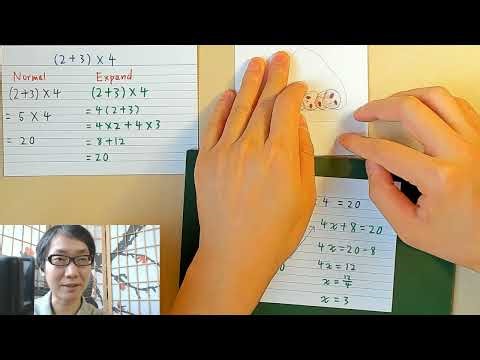 (2+3) × 4
Normal
(2+3) × 4
= 5 × 4
= 20
Expand
(2+3) × 4
= 4(2+3)
= 4×2 + 4×3
= 8+12
= 20
4 = 20
4x + 8 = 20
4x = 20 - 8
4x = 12
x = 12/4
x = 3